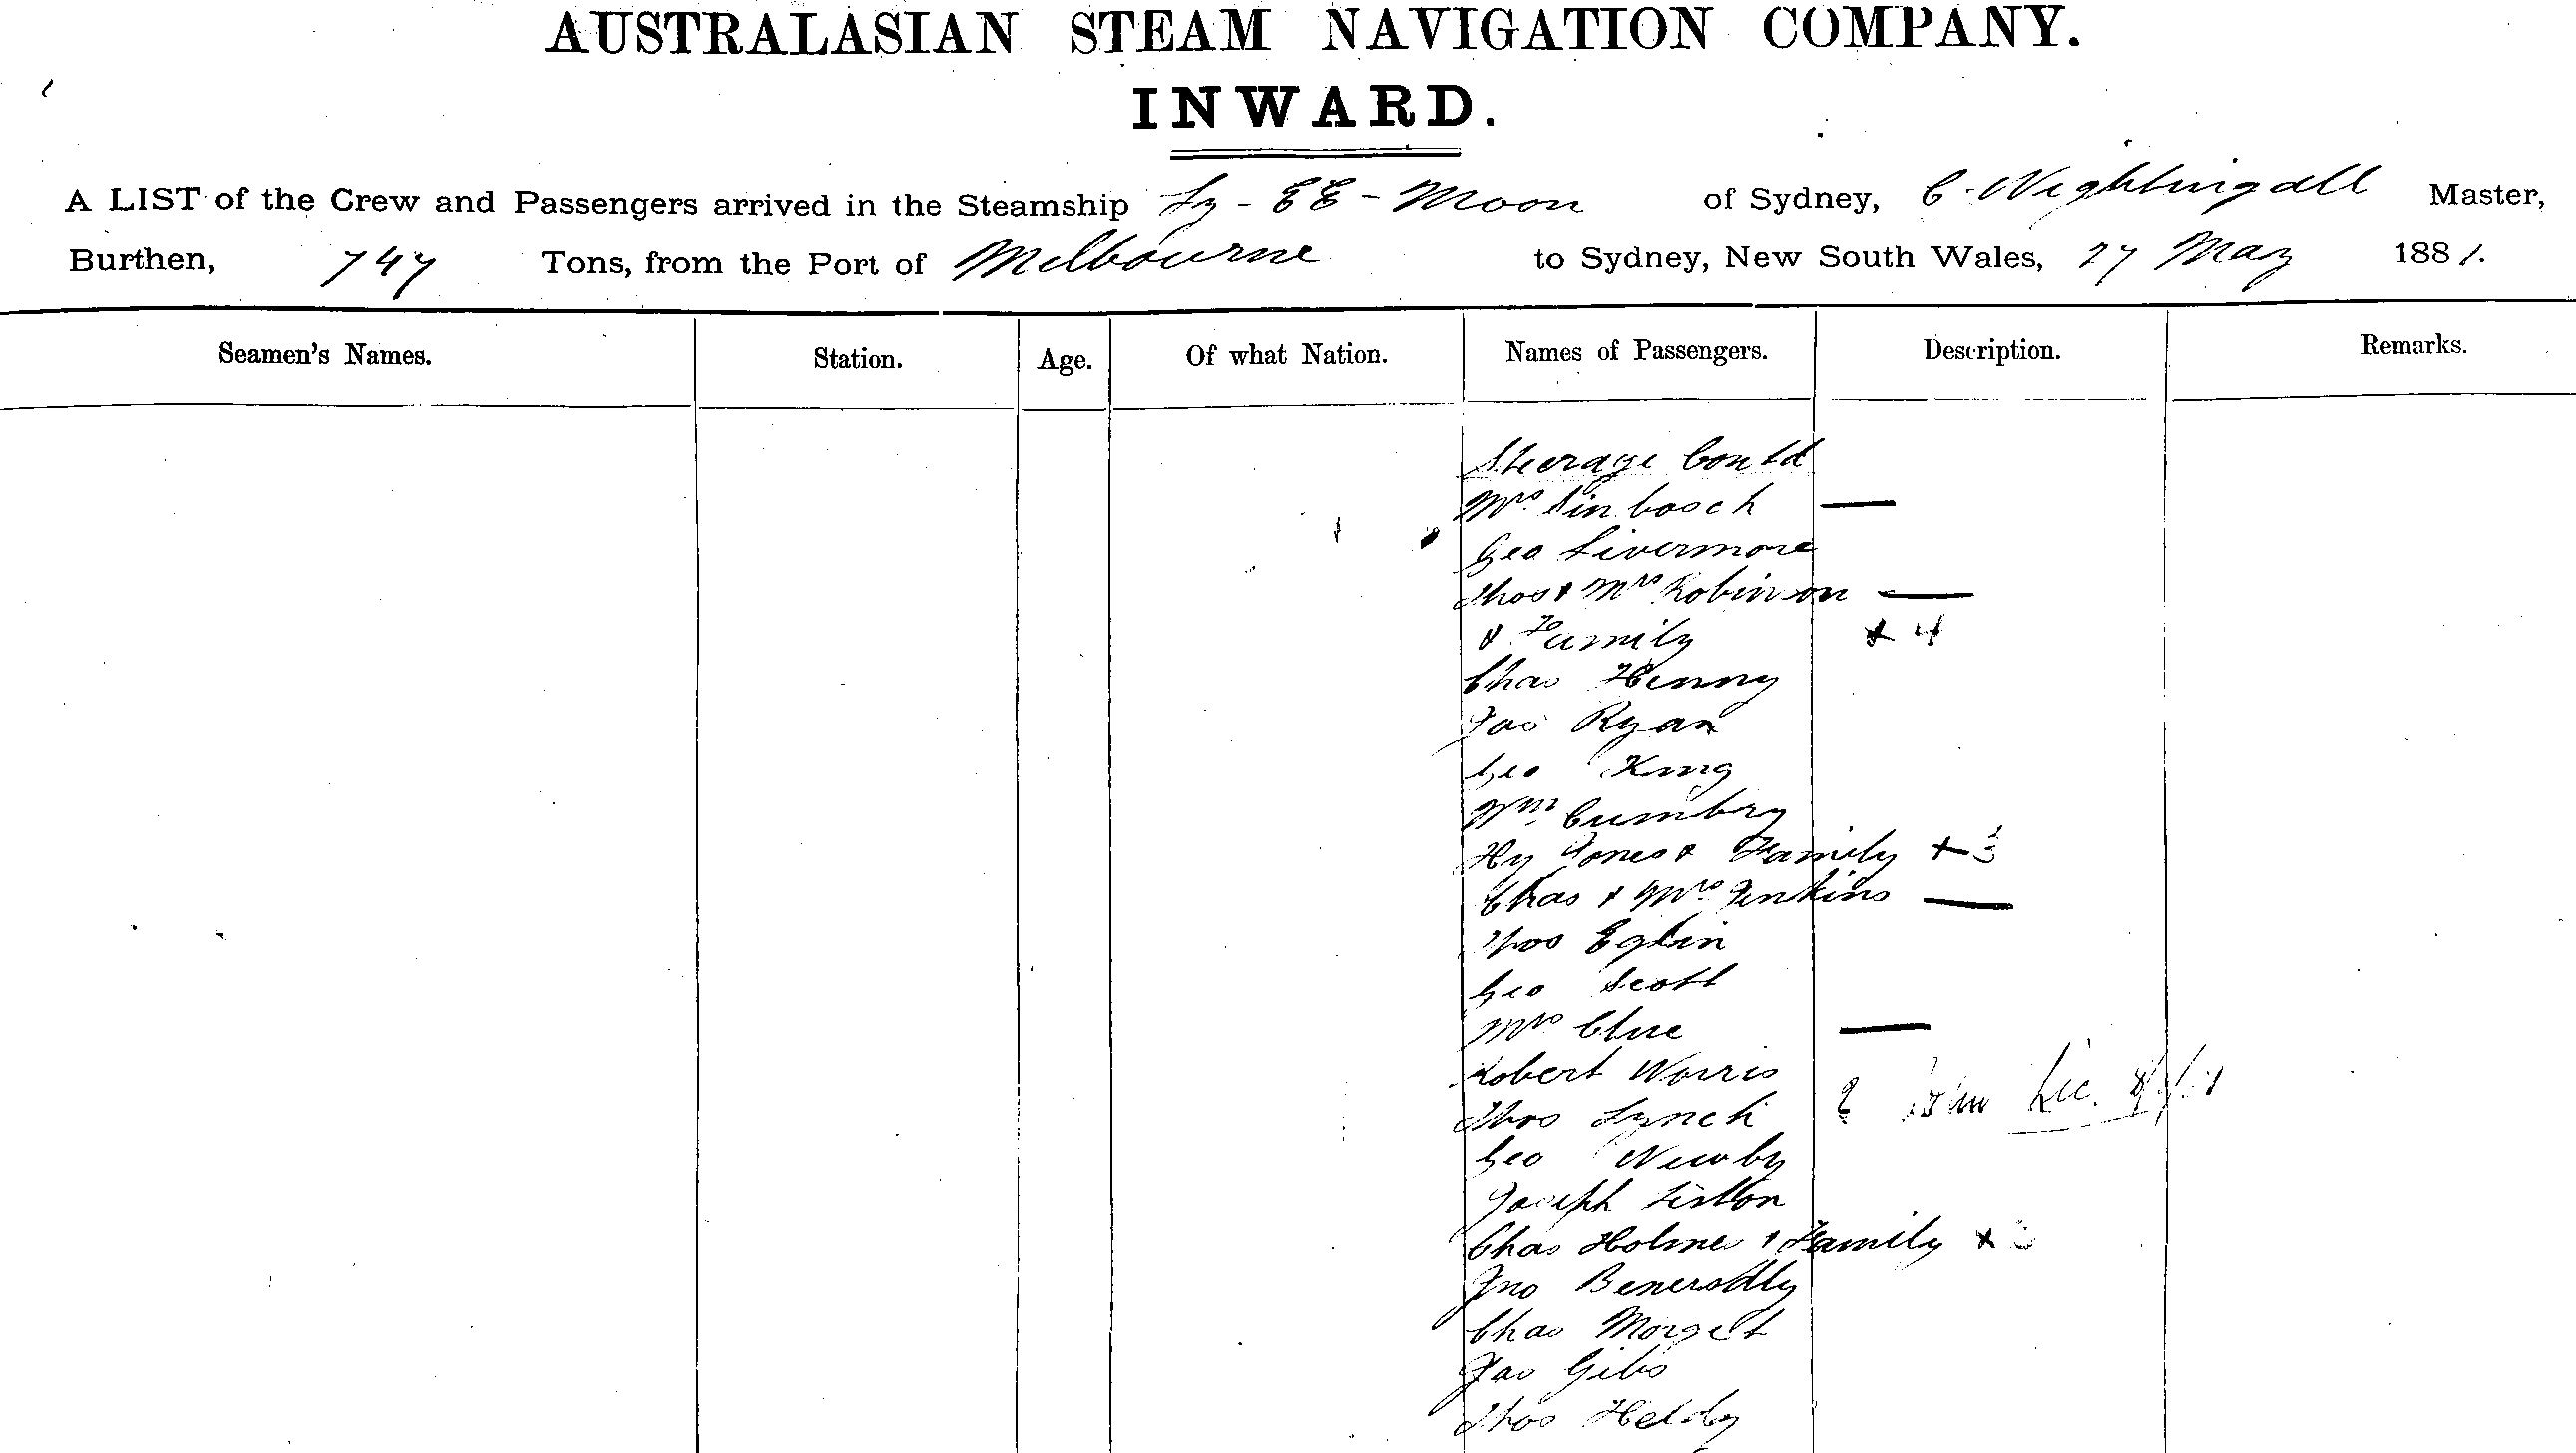 AUSTRALASIAN STEAM NAVIGATION COMPANY.
INWARD.
A LIST of the Crew and Passengers arrived in the Steamship Ly-EE-Moon of Sydney, C. Nightingall Master,
Burthen, 747 Tons, from the Port of Melbourne to Sydney, New South Wales, 27 May 1881.
Seamen's Names. Station. Age. Of what Nation. Names of Passengers. Description. Remarks.
Steerage Contd
Mrs —
Geo Livermore
Thos & Mrs Robinson —
& Family + 4
Chas Henny
Jas Ryan
Geo King
Wm Cumbry
Hy Jones & Family + 3
Chas & Mrs Jenkins —
Thos Eglin
Geo Scott
Mrs Clue —
Robert Worris
Thos Lynch
Geo Newby
Joseph Liston
Chas Holmes & Family +
Jno
Chas Morget
Jas Gibs
Thos Heldy